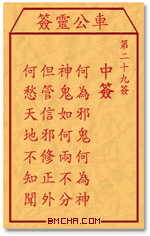 車公靈簽
第二十九簽
中簽
何為邪鬼何為神
神鬼如何兩不分
但管信邪修正外
何愁天地不知聞
BMCHA.COM